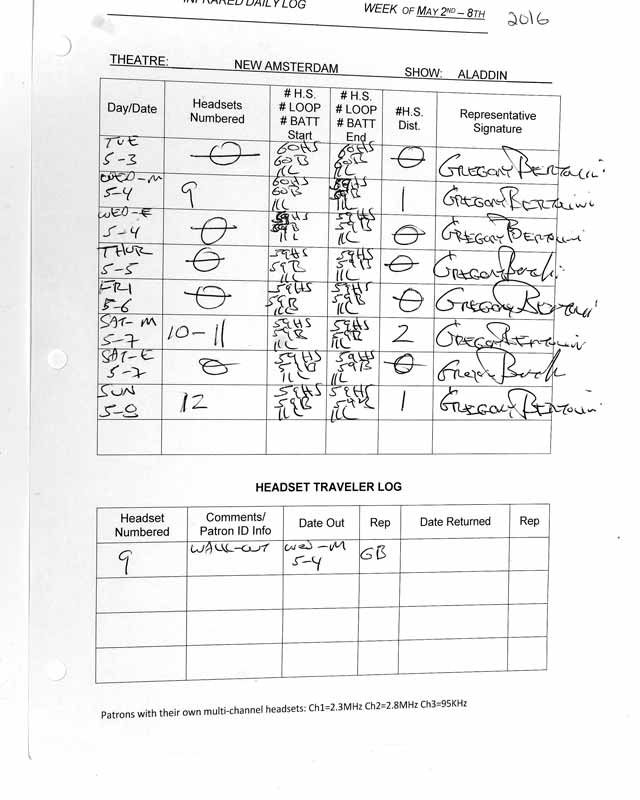 INFRARED DAILY LOG WEEK OF MAY 2ND – 8TH 2016
THEATRE: NEW AMSTERDAM SHOW: ALADDIN
Day/Date Headsets Numbered # H.S. # LOOP # BATT Start # H.S. # LOOP # BATT End #H.S. Dist. Representative Signature
TUE 5-3 0 60HS 60B 11L 60HS 60B 11L 0 GREGORY BERTOLINI
WED-M 5-4 9 60HS 60B 11L 59HS 59B 11L 1 GREGORY BERTOLINI
WED-E 5-4 0 59HS 59B 11L 59HS 59B 11L 0 GREGORY BERTOLINI
THUR 5-5 0 59HS 59B 11L 59HS 59B 11L 0 GREGORY
FRI 5-6 0 59HS 59B 11L 59HS 59B 11L 0 GREGORY BERTOLINI
SAT-M 5-7 10-11 59HS 59B 11L 59HS 59B 11L 2 GREGORY BERTOLINI
SAT-E 5-7 0 59HS 59B 11L 59HS 59B 11L 0
SUN 5-8 12 59HS 59B 11L 59HS 59B 11L 1 GREGORY BERTOLINI
HEADSET TRAVELER LOG
Headset Numbered Comments/ Patron ID Info Date Out Rep Date Returned Rep
9 WALK-OUT WED-M 5-4 GB
Patrons with their own multi-channel headsets: Ch1=2.3MHz Ch2=2.8MHz Ch3=95KHz